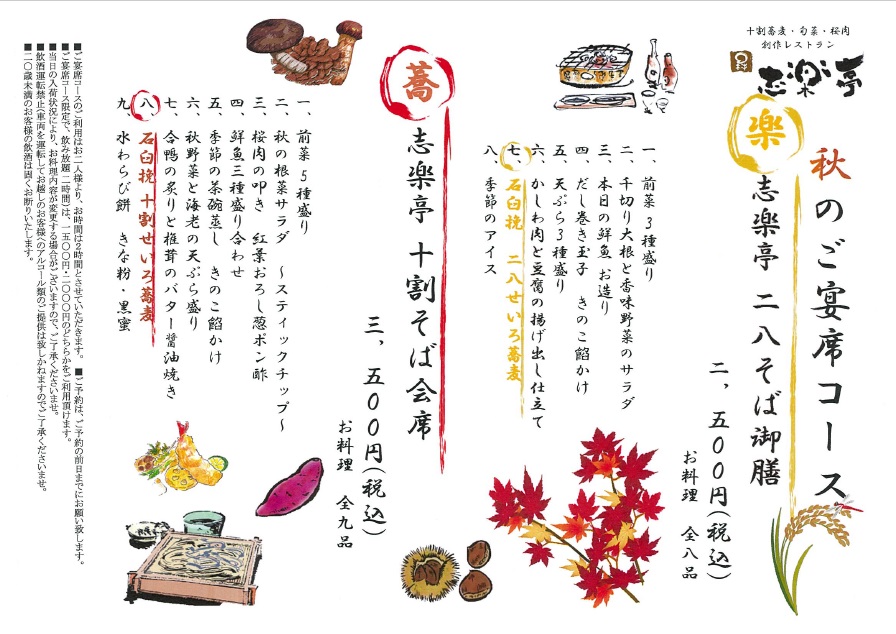 十割蕎麦・旬菜・桜肉
創作レストラン
志楽亭
秋のご宴席コース
楽
志楽亭 二八そば御膳
二、五〇〇円(税込)
お料理 全八品
一、前菜3種盛り
二、千切り大根と香味野菜のサラダ
三、本日の鮮魚 お造り
四、だし巻き玉子 きのこ餡かけ
五、天ぷら3種盛り
六、かしわ肉と豆腐の揚げ出し仕立て
七、石臼挽 二八せいろ蕎麦
八、季節のアイス
蕎
志楽亭 十割そば会席
三、五〇〇円(税込)
お料理 全九品
一、前菜5種盛り
二、秋の根菜サラダ ～スティックチップ～
三、桜肉の叩き 紅葉おろし葱ポン酢
四、鮮魚三種盛り合わせ
五、季節の茶碗蒸し きのこ餡かけ
六、秋野菜と海老の天ぷら盛り
七、合鴨の炙りと椎茸のバター醤油焼き
八、石臼挽 十割せいろ蕎麦
九、水わらび餅 きな粉・黒蜜
■ご宴席コースのご利用はお二人様より、お時間は2時間とさせていただきます。 ■ご予約は、ご予約の前日までにお願い致します。
■ご宴席コース限定で、飲み放題(二時間)は、一五〇〇円・二〇〇〇円のどちらかをご利用頂けます。
■当日の入荷状況により、お料理内容が変更する場合がございますので、ご了承くださいませ。
■飲酒運転禁止(車両を運転してお越しのお客様へのアルコール類のご提供は致しかねますのでご了承くださいませ。
■二〇歳未満のお客様の飲酒は固くお断りいたします。